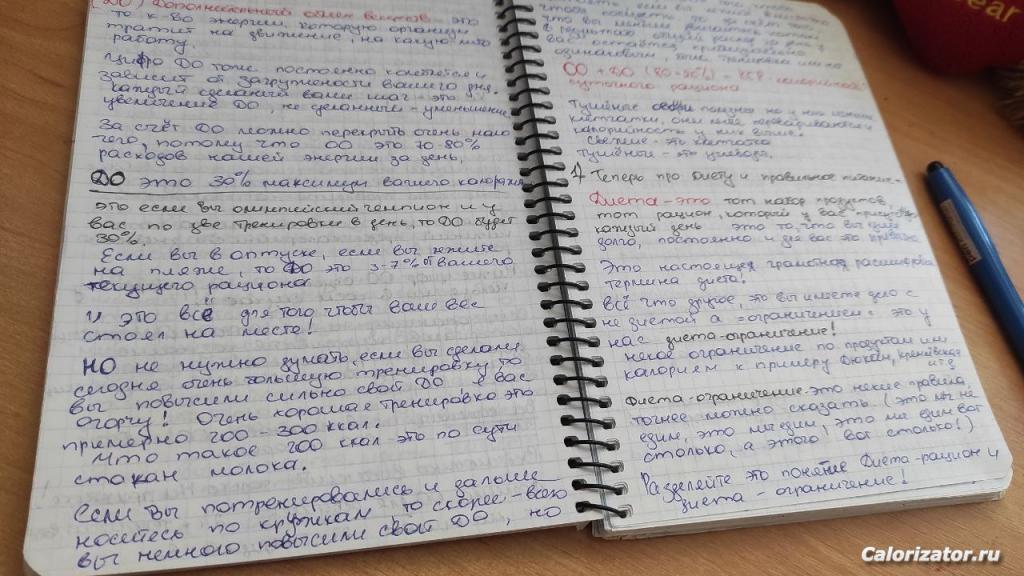 (ДО) Дополнительный обмен веществ это
то к-во энергии, которую организм
тратит на движение, на какую-либо
работу.
Цифра ДО тоже постоянно колеблется и
зависит от загруженности вашего дня.
Каждый сделанный вами шаг - это
увеличение ДО, не сделанный - уменьшение
За счёт ДО можно перекрыть очень мало
чего, потому что ОО это 70-80%
расходов вашей энергии за день.
ДО это 30% максимум вашего калоража
это если вы олимпийский чемпион и у
вас по две тренировки в день, то ДО будет
30%
Если вы в отпуске, если вы лежите
на пляже, то ДО это 3-7% от вашего
текущего рациона
и это всё для того чтобы ваш вес
стоял на месте!
НО не нужно думать, если вы сделали
сегодня очень большую тренировку, то
вы повысили сильно свой ДО я вас
огорчу! Очень хорошая тренировка это
примерно 200-300 ккал.
Что такое 200 ккал это по сути
стакан молока.
Если вы потренировались и дальше
носитесь по кружкам то скорее-всего
вы немного повысили свой ДО, но
что вы
в результате общий расход за день у
вас остаётся
одинаковым, хоть тренировка или нет
ОО + ДО
суточного рациона
Тушёные овощи
клетчатки, они легче перевариваются и
калорийность у них выше.
Свежие - это клетчатка
тушёные - это углеводы.
Теперь про диету и правильное питание -
Диета - это тот набор продуктов,
тот рацион, который у вас присутствует
каждый день это то, что вы едите
долго, постоянно и для вас это
Это настоящая грамотная расшифровка
термина диета!
Всё что другое, это вы имеете дело с
не диетой а = ограничением = это у
нас диета-ограничение!
некое ограничение по продуктам или
калориям к примеру Дюкан, кремлевская
и т.д
Диета-ограничение - это некие правила
точнее можно сказать (это мы не
едим, это мы едим, это мы едим вот
столько, а этого вот столько!)
Разделяйте это понятие Диета-рацион и
диета - ограничение!
ear
Calorizator.ru